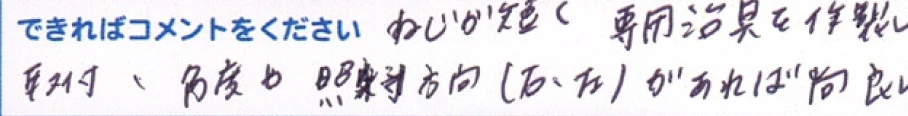 できればコメントをください ねじが短く 専用治具を作製し
取付、角度や照射方向(右、左)があれば尚良い